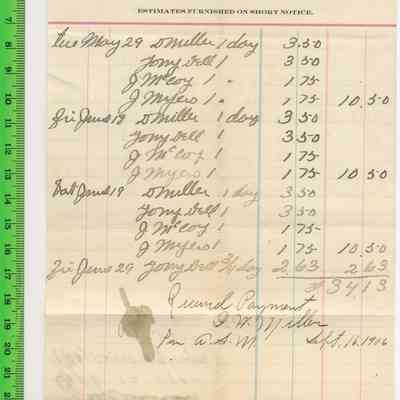 ESTIMATES FURNISHED ON SHORT NOTICE.
Tue May 29 D Miller 1 day 3.50
Tony Dell 1 3 50
J McCoy 1 " 1 75
J Myers 1 " 1 75 10.50
Fri June 18 D Miller 1 day 3 50
Tony Dell 1 3 50
J McCoy 1 1 75
J Myers 1 1 75 10 50
Sat June 19 D Miller 1 day 3 50
Tony Dell 1 3 50
J McCoy 1 1 75
J Myers 1 1 75 10.50
Fri June 29 Tony Dell 3/4 day 2.63 2.63
$ 34 13
Received Payment
D. W. Miller
Per A. S. M. Sept. 16, 1906
7 8 9 10 11 12 13 14 15 16 17 18 19 20 21